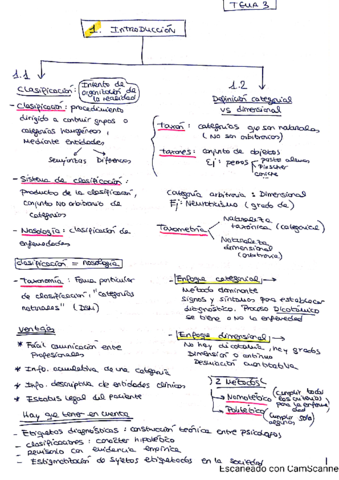 TEMA 3
1. INTRODUCCIÓN
1.1
Clasificación: Intento de
organización de
la realidad
- Clasificación: procedimiento
dirigido a construir grupos o
categorías homogéneas,
Mediante entidades
Semejantes Diferentes
- Sistema de clasificación:
Producto de la clasificación,
conjunto no arbitrario de
categorías
- Nosología: clasificación de
enfermedades
clasificación = nosología
- Taxonomía: Forma particular
de clasificación, "categorías
naturales" (DSM)
Ventajas
* Fácil comunicación entre
Profesionales
* Info. acumulativa de una categoría
* Info. descriptiva de entidades clínicas
* Estatus legal del paciente
Hay que tener en cuenta
- Etiquetas diagnósticas: construcción teórica entre psicólogos
- clasificaciones: carácter hipotético
- revisarlo con evidencia empírica
- Estigmatización de sujetos etiquetados en la sociedad
1.2
Definición categorial
vs dimensional
Taxón: categorías que son naturales
(No son arbitrarios)
taxones: conjunto de objetos
Ej: perros
pastor alemán
caniche
Categoría arbitraria: Dimensional
Ej: Neuroticismo (grado de)
Taxometría
Naturaleza
taxónica (categorial)
Naturaleza
dimensional
(arbitraria)
- Enfoque categorial
Método dominante
signos y síntomas para establecer
diagnóstico. Proceso Dicotómico
Se tiene o no la enfermedad
- Enfoque dimensional
No hay dicotomía, hay grados
Dimensión o continuo
Desviación cuantitativa
2 Métodos
Nomotético (cumplir todos
los criterios
para la enferme
dad)
Politético (cumplir solo
algunos)
1
Escaneado con CamScanner